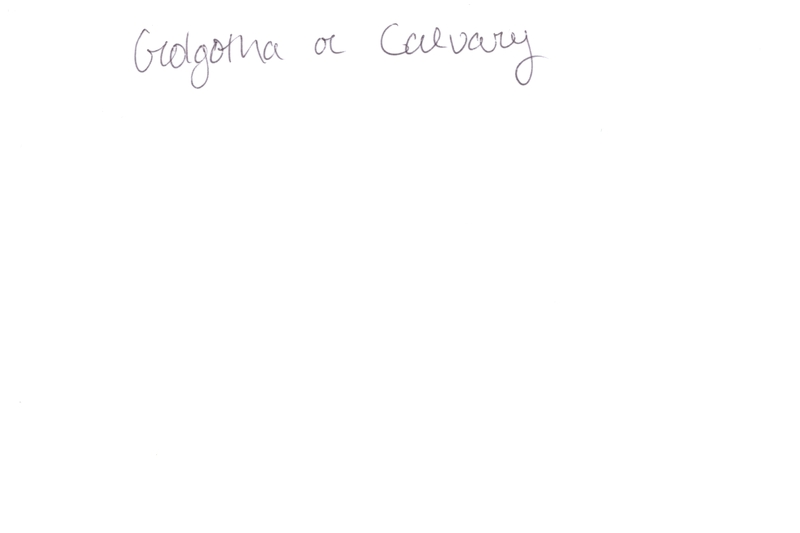 Golgotha or Calvary